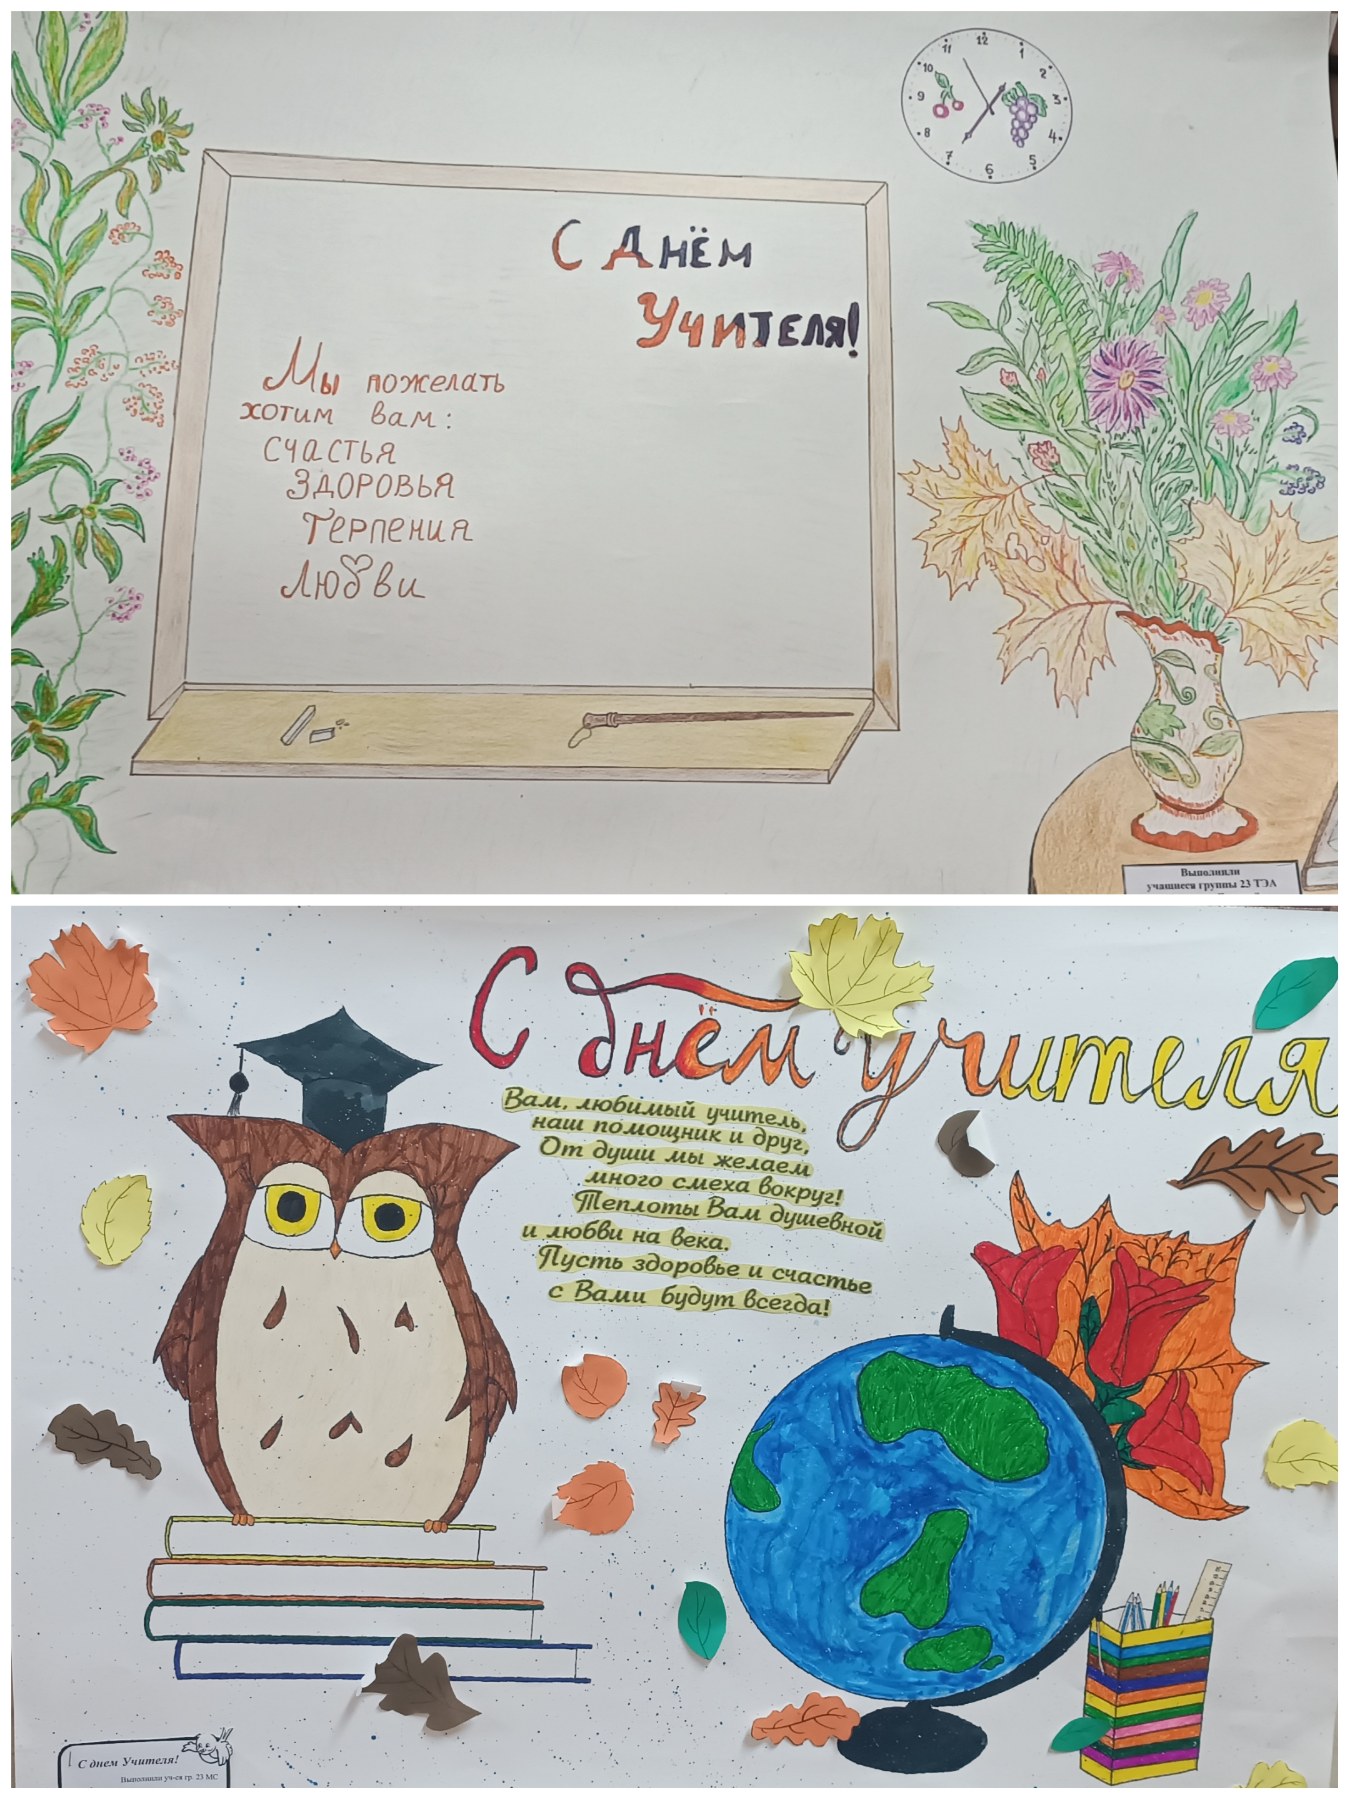 12
11
1
10
2
9
3
8
4
7
5
6
С Днём
Учителя!
Мы пожелать
хотим вам:
Счастья
Здоровья
Терпения
Любви
Выполнили
учащиеся группы 23 ТЭА
С днём учителя
Вам, любимый учитель,
наш помощник и друг,
От души мы желаем
много смеха вокруг!
Теплоты Вам душевной
и любви на века.
Пусть здоровье и счастье
с Вами будут всегда!
С днем Учителя!
Выполнили уч-ся гр. 23 МС